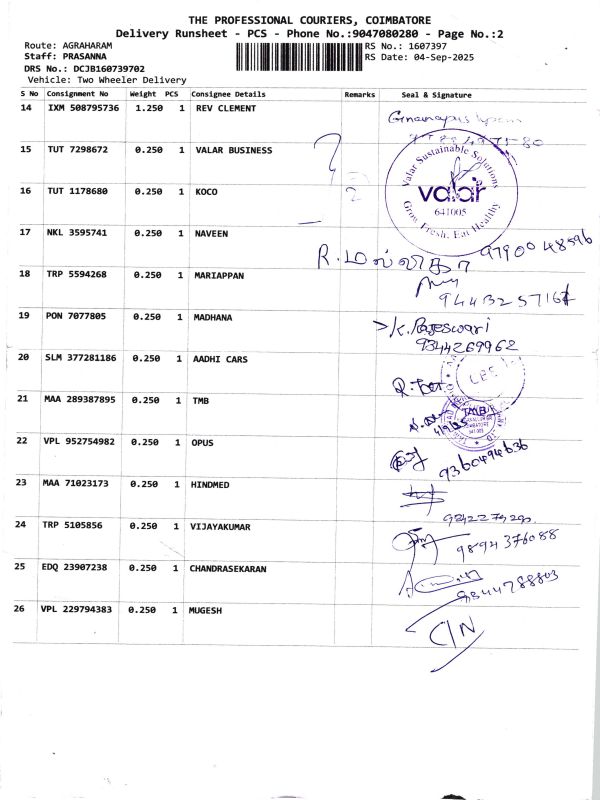 THE PROFESSIONAL COURIERS, COIMBATORE
Delivery Runsheet - PCS - Phone No.:9047080280 - Page No.:2
Route: AGRAHARAM RS No.: 1607397
Staff: PRASANNA RS Date: 04-Sep-2025
DRS No.: DCJB160739702
Vehicle: Two Wheeler Delivery
S No Consignment No Weight PCS Consignee Details Remarks Seal & Signature
14 IXM 508795736 1.250 1 REV CLEMENT
15 TUT 7298672 0.250 1 VALAR BUSINESS
Valar Sustainable Solutions
valar
641005
Grow Fresh. Eat Healthy
16 TUT 1178680 0.250 1 KOCO
17 NKL 3595741 0.250 1 NAVEEN
R. மல்லிகா 9790048596
18 TRP 5594268 0.250 1 MARIAPPAN
19 PON 7077805 0.250 1 MADHANA
K. Rajeswari
9344269962
20 SLM 377281186 0.250 1 AADHI CARS
21 MAA 289387895 0.250 1 TMB
TMB
22 VPL 952754982 0.250 1 OPUS
9360494636
23 MAA 71023173 0.250 1 HINDMED
24 TRP 5105856 0.250 1 VIJAYAKUMAR
9894376088
25 EDQ 23907238 0.250 1 CHANDRASEKARAN
9344788803
26 VPL 229794383 0.250 1 MUGESH
C/N